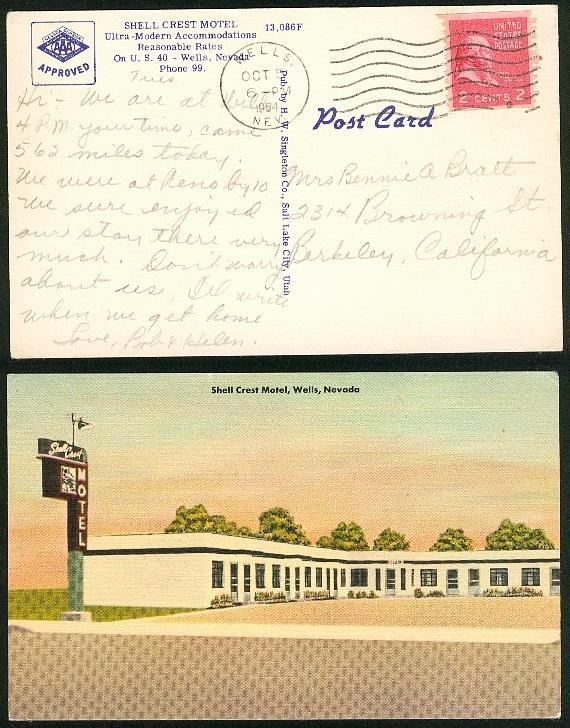 SHELL CREST MOTEL 13,086F
Ultra-Modern Accommodations
Reasonable Rates
On U. S. 40 - Wells, Nevada
Phone 99.
AAA
APPROVED
WELLS,
OCT 5
6 PM
1954
NEV.
UNITED
STATES
POSTAGE
2 CENTS 2
Post Card
Pub. by H. W. Singleton Co., Salt Lake City, Utah
Tues
Hi - We are at Wells
4 P.M. your time, came
562 miles today.
We were at Reno by 10
We sure enjoyed
our stay there very
much. Don't worry
about us, I'll write
when we get home
Love, Bob & Helen.
Mrs Bennie A Bratt
2314 Browning St.
Berkeley, California
Shell Crest Motel, Wells, Nevada
Shell Crest
MOTEL